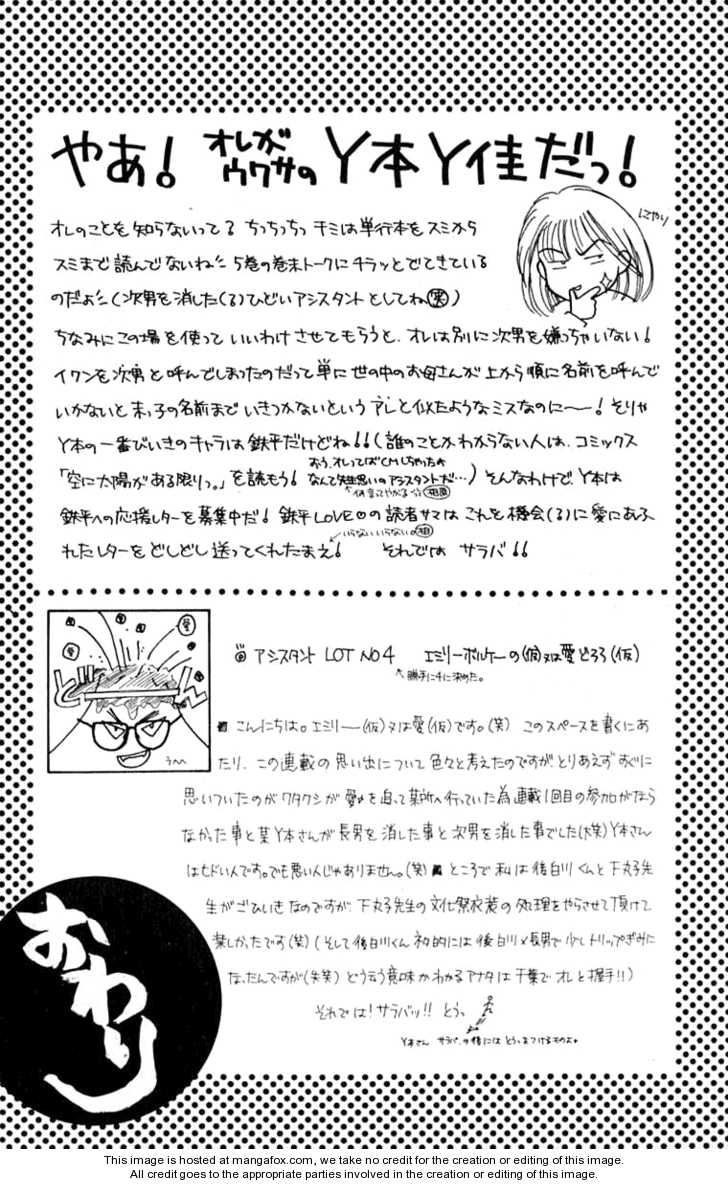 やあ! オレがウワサの Y本Y佳だっ!
オレのことを知らないってる ちっちっちっ キミは単行本をスミから
にやり
スミまで読んでないね!! 5巻の巻末トークにチラッとでてきている
のだよ!!(次男を消した(る)ひどいアシスタントとしてね(笑))
ちなみにこの場を使っていいわけさせてもらうと、オレは別に次男を嫌っちゃいない!
イワンを次男と呼んでしまったのだって単に世の中のお母さんが上から順に名前を呼んで
いかないと末っ子の名前までいきつかないというアレと似たようなミスなのにー! そりゃ
Y本の一番びいきのキャラは鉄平だけどね!!(誰のことかわからない人は、コミックス
「空に太陽がある限りっ。」を読もう! おう、オレってばCMしちゃったよ なんて先生思いのアシスタントだ…) そんなわけで、Y本は
何言ってやがる
鉄平への応援レターを募集中だ! 鉄平LOVE♡の読者サマはこれを機会(る)に愛にあふ
いらないいらない
れたレターをどしどし送ってくれたまえ! それでは サラバ!!
どーん
うへへ
アシスタント LOT NO4 エミリーボルケーの(仮)又は愛どろろ(仮)
勝手に4に決めた。
こんにちは。エミリー(仮)又は愛(仮)です。(笑) このスペースを書くにあ
たり、この連載の思い出について色々と考えたのですがとりあえずすぐに
思いついたのがワタクシが愛を追って某所へ行っていた為連載1回目の参加がなら
なかった事と某Y本さんが長男を消した事と次男を消した事でした(大笑)Y本さん
はヒドい人です。でも悪い人じゃありません。(笑) ところで私は後白川くんと下丸子先
生がごひいきなのですが下丸子先生の文化祭衣装の処理をやらせて頂けて
楽しかったです(笑)(そして後白川くん 初的には後白川×長男で少しトリップぎみに
なったんですが(失笑) どう云う意味かわかるアナタは千葉でオレと握手!!)
それでは!サラバッ!! とうっ
Y本さん サラバ、の後には とうっをつけるものよ。
おわり
This image is hosted at mangafox.com, we take no credit for the creation or editing of this image.
All credit goes to the appropriate parties involved in the creation or editing of this image.